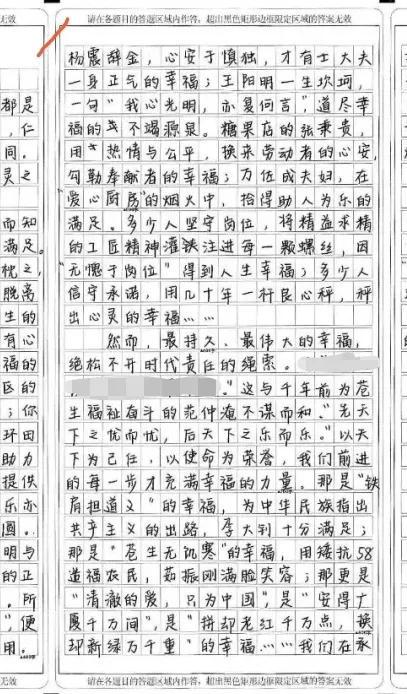 请在各题目的答题区域内作答，超出黑色矩形边框限定区域的答案无效
无效
请在
杨震辞金，心安于慎独，才有士大夫
一身正气的幸福；王阳明一生坎坷，
一句“我心光明，亦复何言”，道尽幸
福的不竭源泉。糖果店的张秉贵，
用热情与公平，换来劳动者的心安，
勾勒奉献者的幸福；万佐成夫妇，在
爱心厨房的烟火中，拾得助人为乐的
满足。多少人坚守岗位，将精益求精
的工匠精神灌注进每一颗螺丝，因
“无愧于岗位”得到人生幸福；多少人
信守承诺，用几十年一杆良心秤，秤
出心灵的幸福……
然而，最持久、最伟大的幸福，
绝松不开时代责任的绳索。
。”这与千年前为苍
生福祉奋斗的范仲淹不谋而和。“先天
下之忧而忧，后天下之乐而乐。”以天
下为己任，以使命为荣誉，我们前进
的每一步才充满幸福的力量。那是“铁
肩担道义”的幸福，为中华民族指出
共产主义的出路，李大钊十分满足；
那是“苍生无饥寒”的幸福，用矮抗58
造福农民，茹振刚满脸笑容；那更是
“清澈的爱，只为中国”，是“安得广
厦千万间”，是“拼却老红千万点，换
却新绿万千重”的幸福……我们在永
都是
，仁
间。
灵之
而知
满足。
枕之，
脱离
生的
有心
福的
区的
；你
环田
助力
提供
乐亦
圆。
明与
的正
。所
”，便
用。
请在各题目的答题区域内作答，超出黑色矩形边框限定区域的答案无效
无效
请在